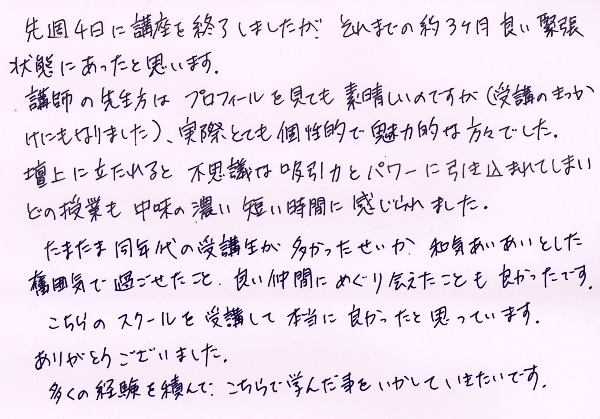 先週4日に講座を終了しましたが、それまでの約3ヶ月良い緊張
状態にあったと思います。
講師の先生方は プロフィールを見ても 素晴しいのですが(受講のきっか
けにもなりました)、実際とても個性的で魅力的な方々でした。
壇上に立たれると 不思議な吸引力とパワーに引き込まれてしまい
どの授業も 中味の濃い 短い時間に 感じられました。
たまたま同年代の受講生が 多かったせいか、和気あいあいとした
雰囲気で過ごせたこと、良い仲間に めぐり会えたことも 良かったです。
こちらのスクールを受講して 本当に 良かったと思っています。
ありがとうございました。
多くの経験を積んで、こちらで学んだ事をいかしていきたいです。